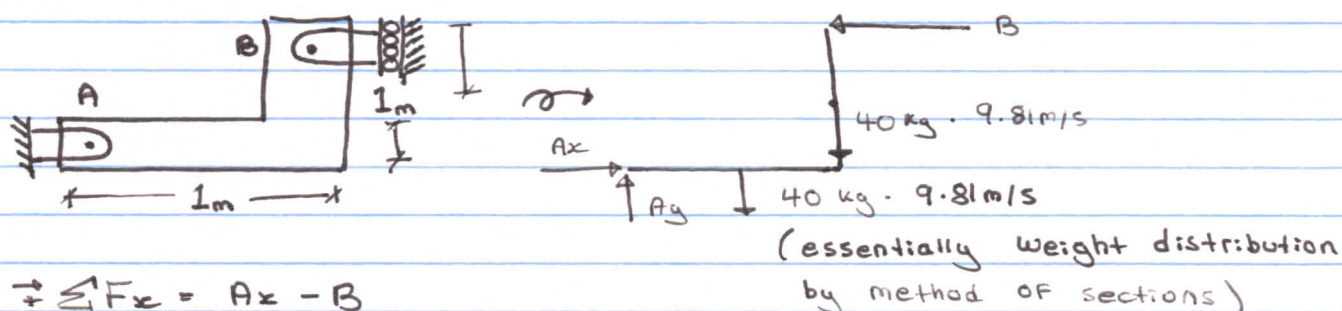 B
A
1m
1m
B
40 kg · 9.81m/s
Ax
Ay
40 kg · 9.81m/s
(essentially weight distribution
by method of sections)
ΣFx = Ax - B